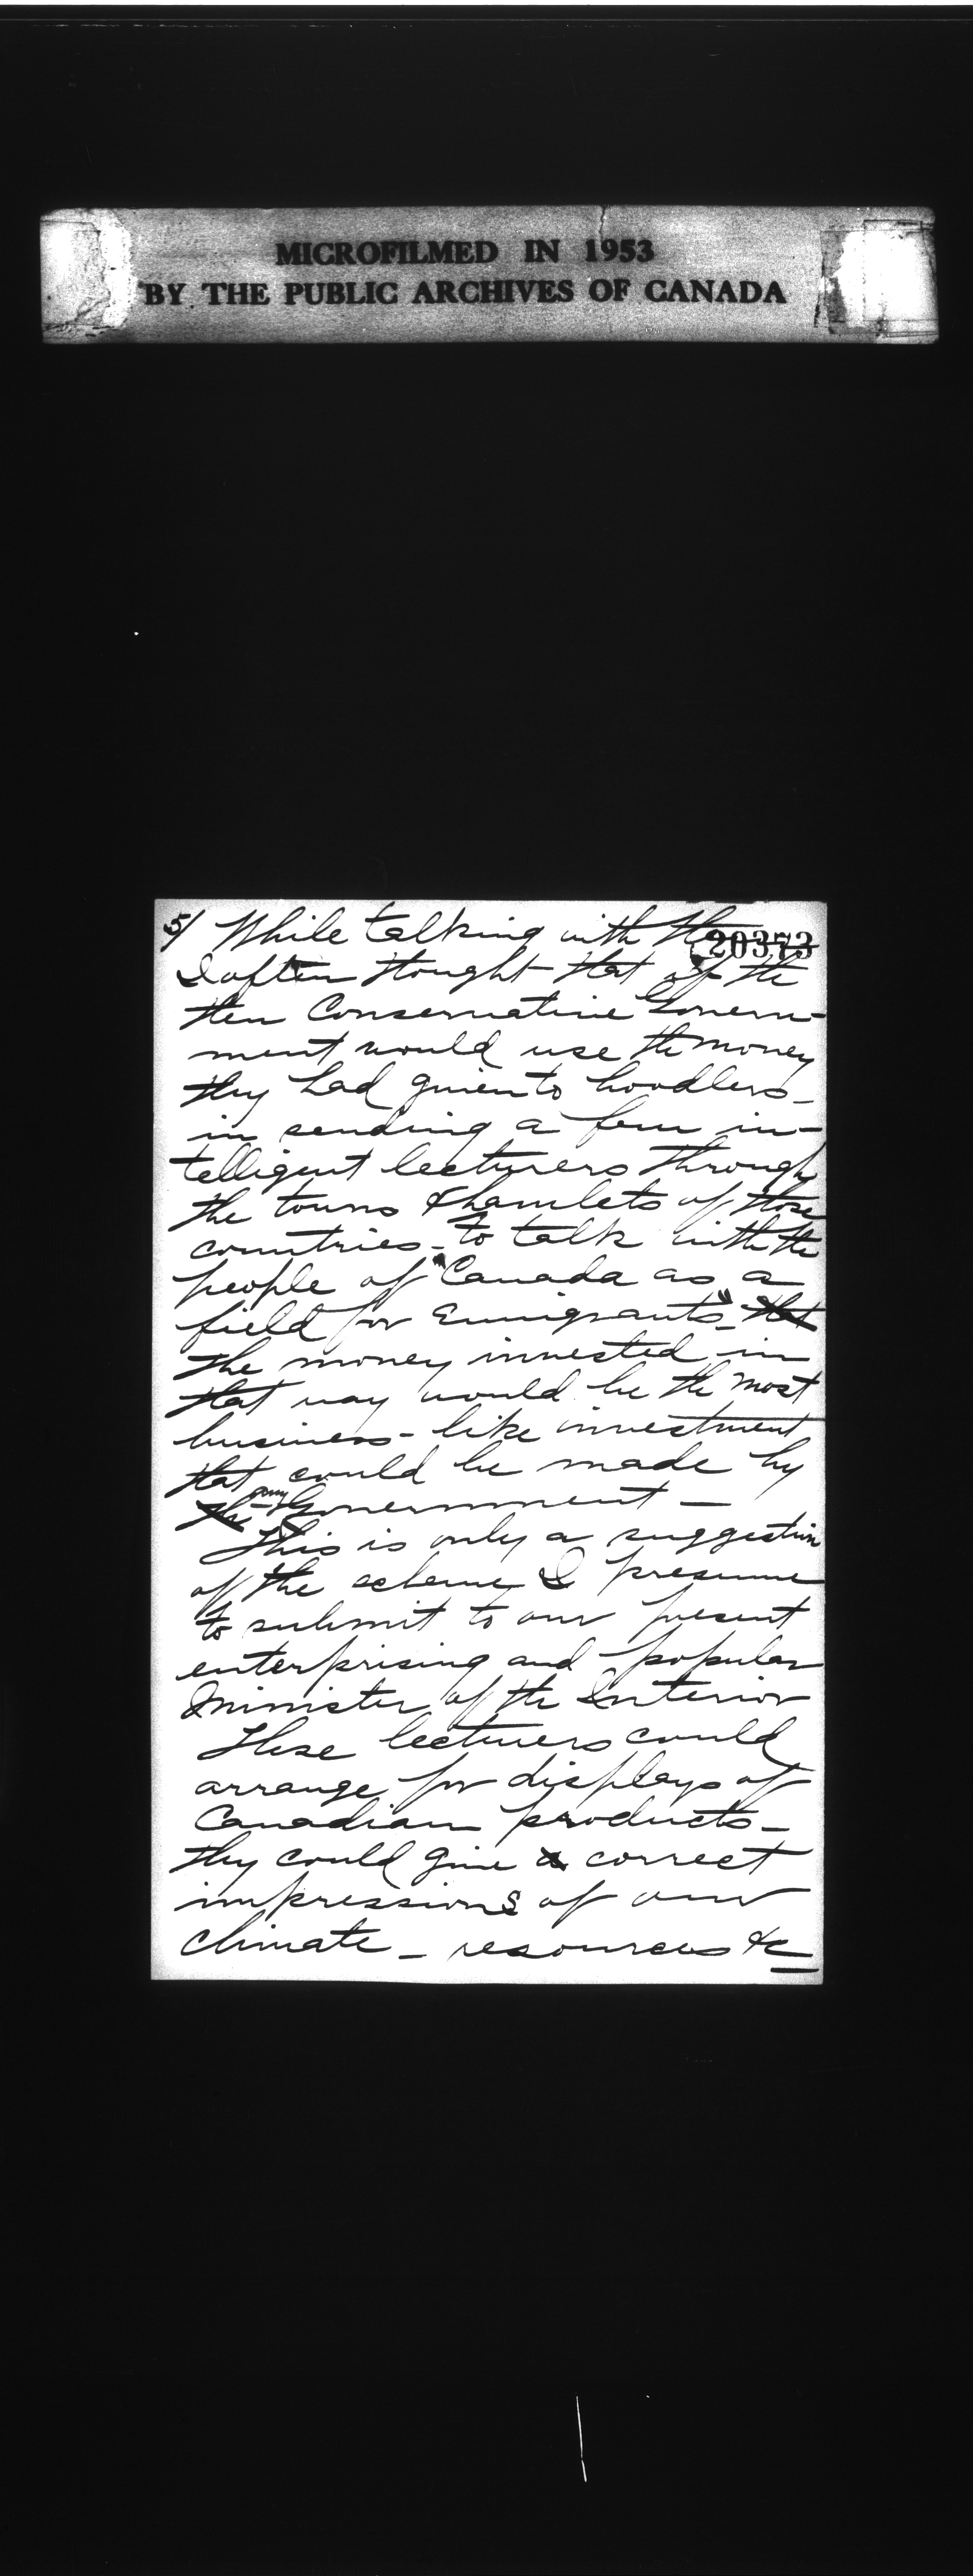 MICROFILMED IN 1953
BY THE PUBLIC ARCHIVES OF CANADA
20373
5/ While talking with
I often thought that if the
then Conservative Govern-
ment would use the money
they had given to boodlers -
in sending a few in-
telligent lecturers through
the towns & hamlets of those
countries - to talk with the
people of "Canada as a
field for Emigrants" - that
the money invested in
that way would be the most
business-like investment
that could be made by
the any Government -
This is only a suggestion
of the scheme I presume
to submit to our present
enterprising and popular
Minister of the Interior
These lecturers could
arrange for displays of
Canadian products -
they could give a correct
impressions of our
climate - resources &c